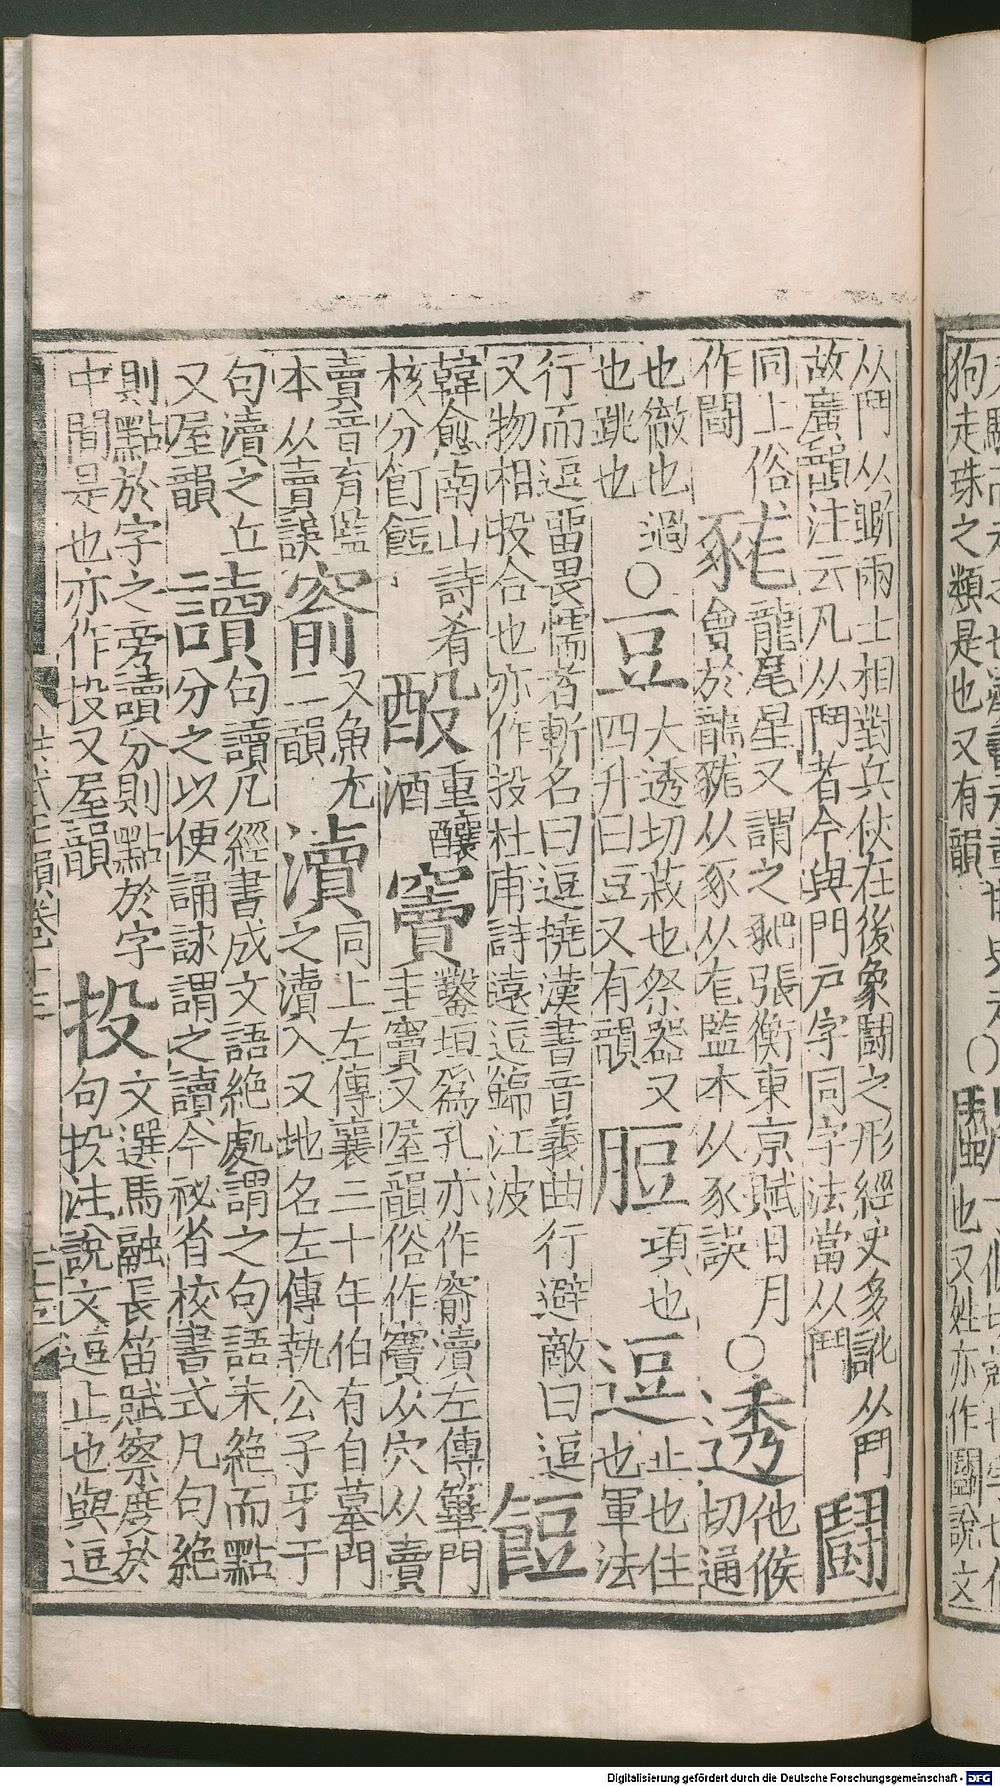 狗走珠之類是也又有韻
也又姓亦作鬮說文
从鬥从斲兩士相對兵仗在後象鬪之形經史多訛从門
故廣韻注云凡从鬥者今與門戶字同字法當从鬥
鬪
同上俗
作閗
龍尾星又謂之 張衡東京賦日月
會於龍 从豕从 監本从豖誤
○透
他候
切通
也徹也過
也跳也
○豆
大透切菽也祭器又
四升曰豆又有韻
脰
項也
逗
止也住
也軍法
行而逗畱畏懦者斬名曰逗撓漢書音義曲行避敵曰逗
又物相投合也亦作投杜甫詩遠逗錦江波
餖
韓愈南山詩肴
核分飣餖
酘
重釀
酒
竇
鑿垣爲孔亦作窬瀆左傳篳門
圭竇又屋韻俗作竇从穴从賣
賣音育監
本从賣誤
窬
又魚尤
二韻
瀆
同上左傳襄三十年伯有自墓門
之瀆入又地名左傳執公子牙于
句瀆之丘
又屋韻
讀
句讀凡經書成文語絕處謂之句語未絕而點
分之以便誦詠謂之讀今祕省校書式凡句絕
則點於字之旁讀分則點於字
中間是也亦作投又屋韻
投
文選馬融長笛賦察度於
句投注說文逗止也與逗
洪武正韻卷十三
Digitalisierung gefördert durch die Deutsche Forschungsgemeinschaft - DFG